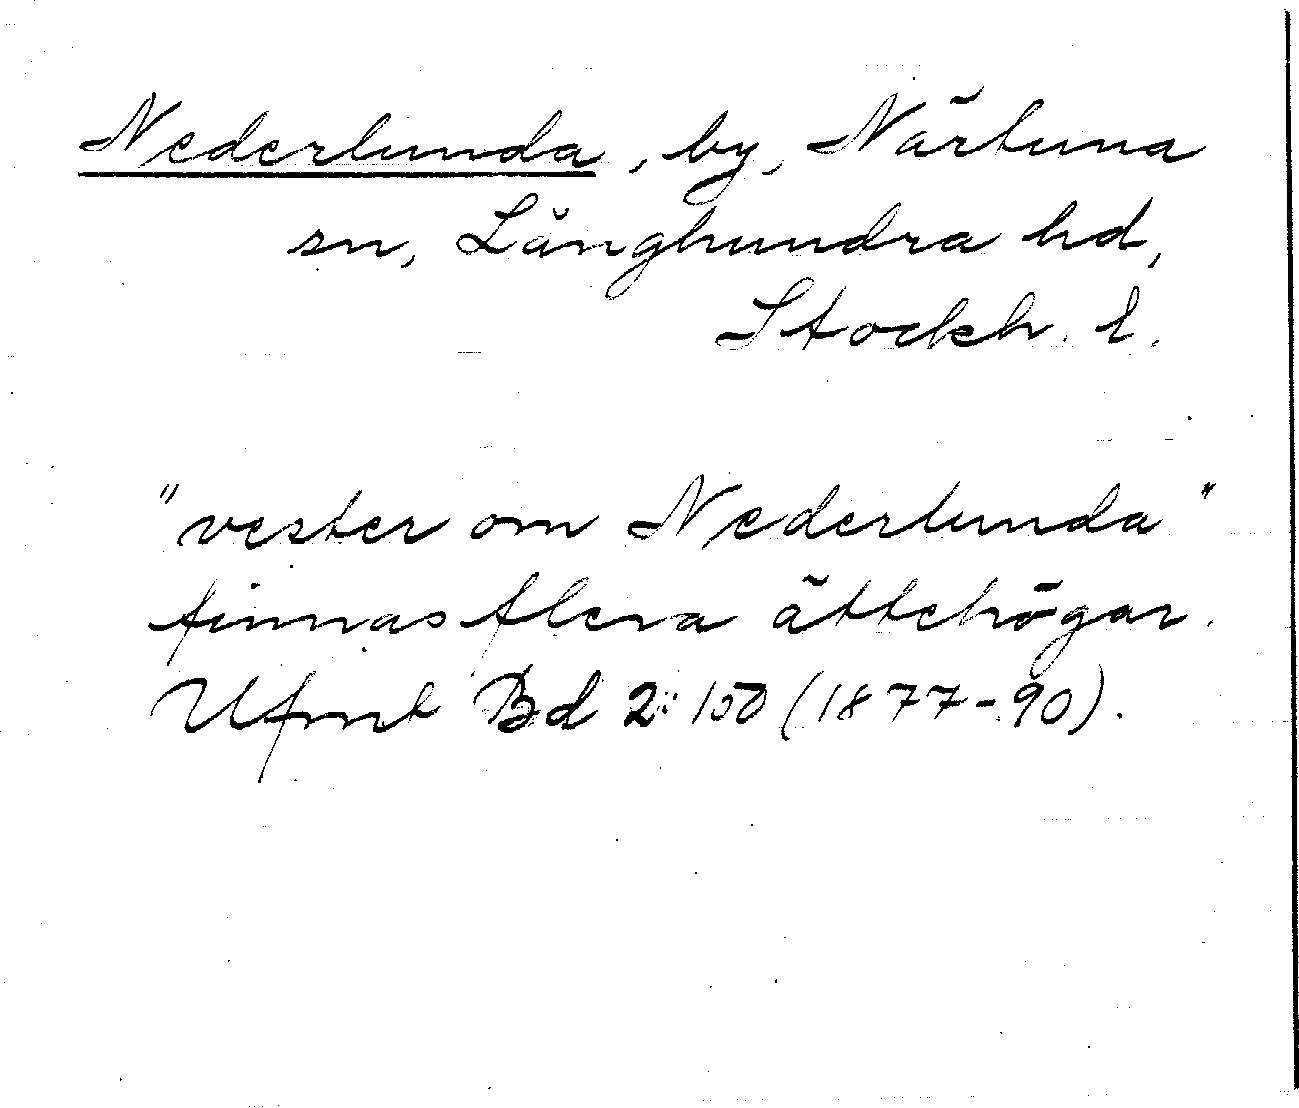 Nederlunda, by, Närtuna
sn, Långhundra hd,
Stockh. l.
"vester om Nederlunda"
finnas flera ättehögar.
Ufmt Bd 2: 150 (1877-90).